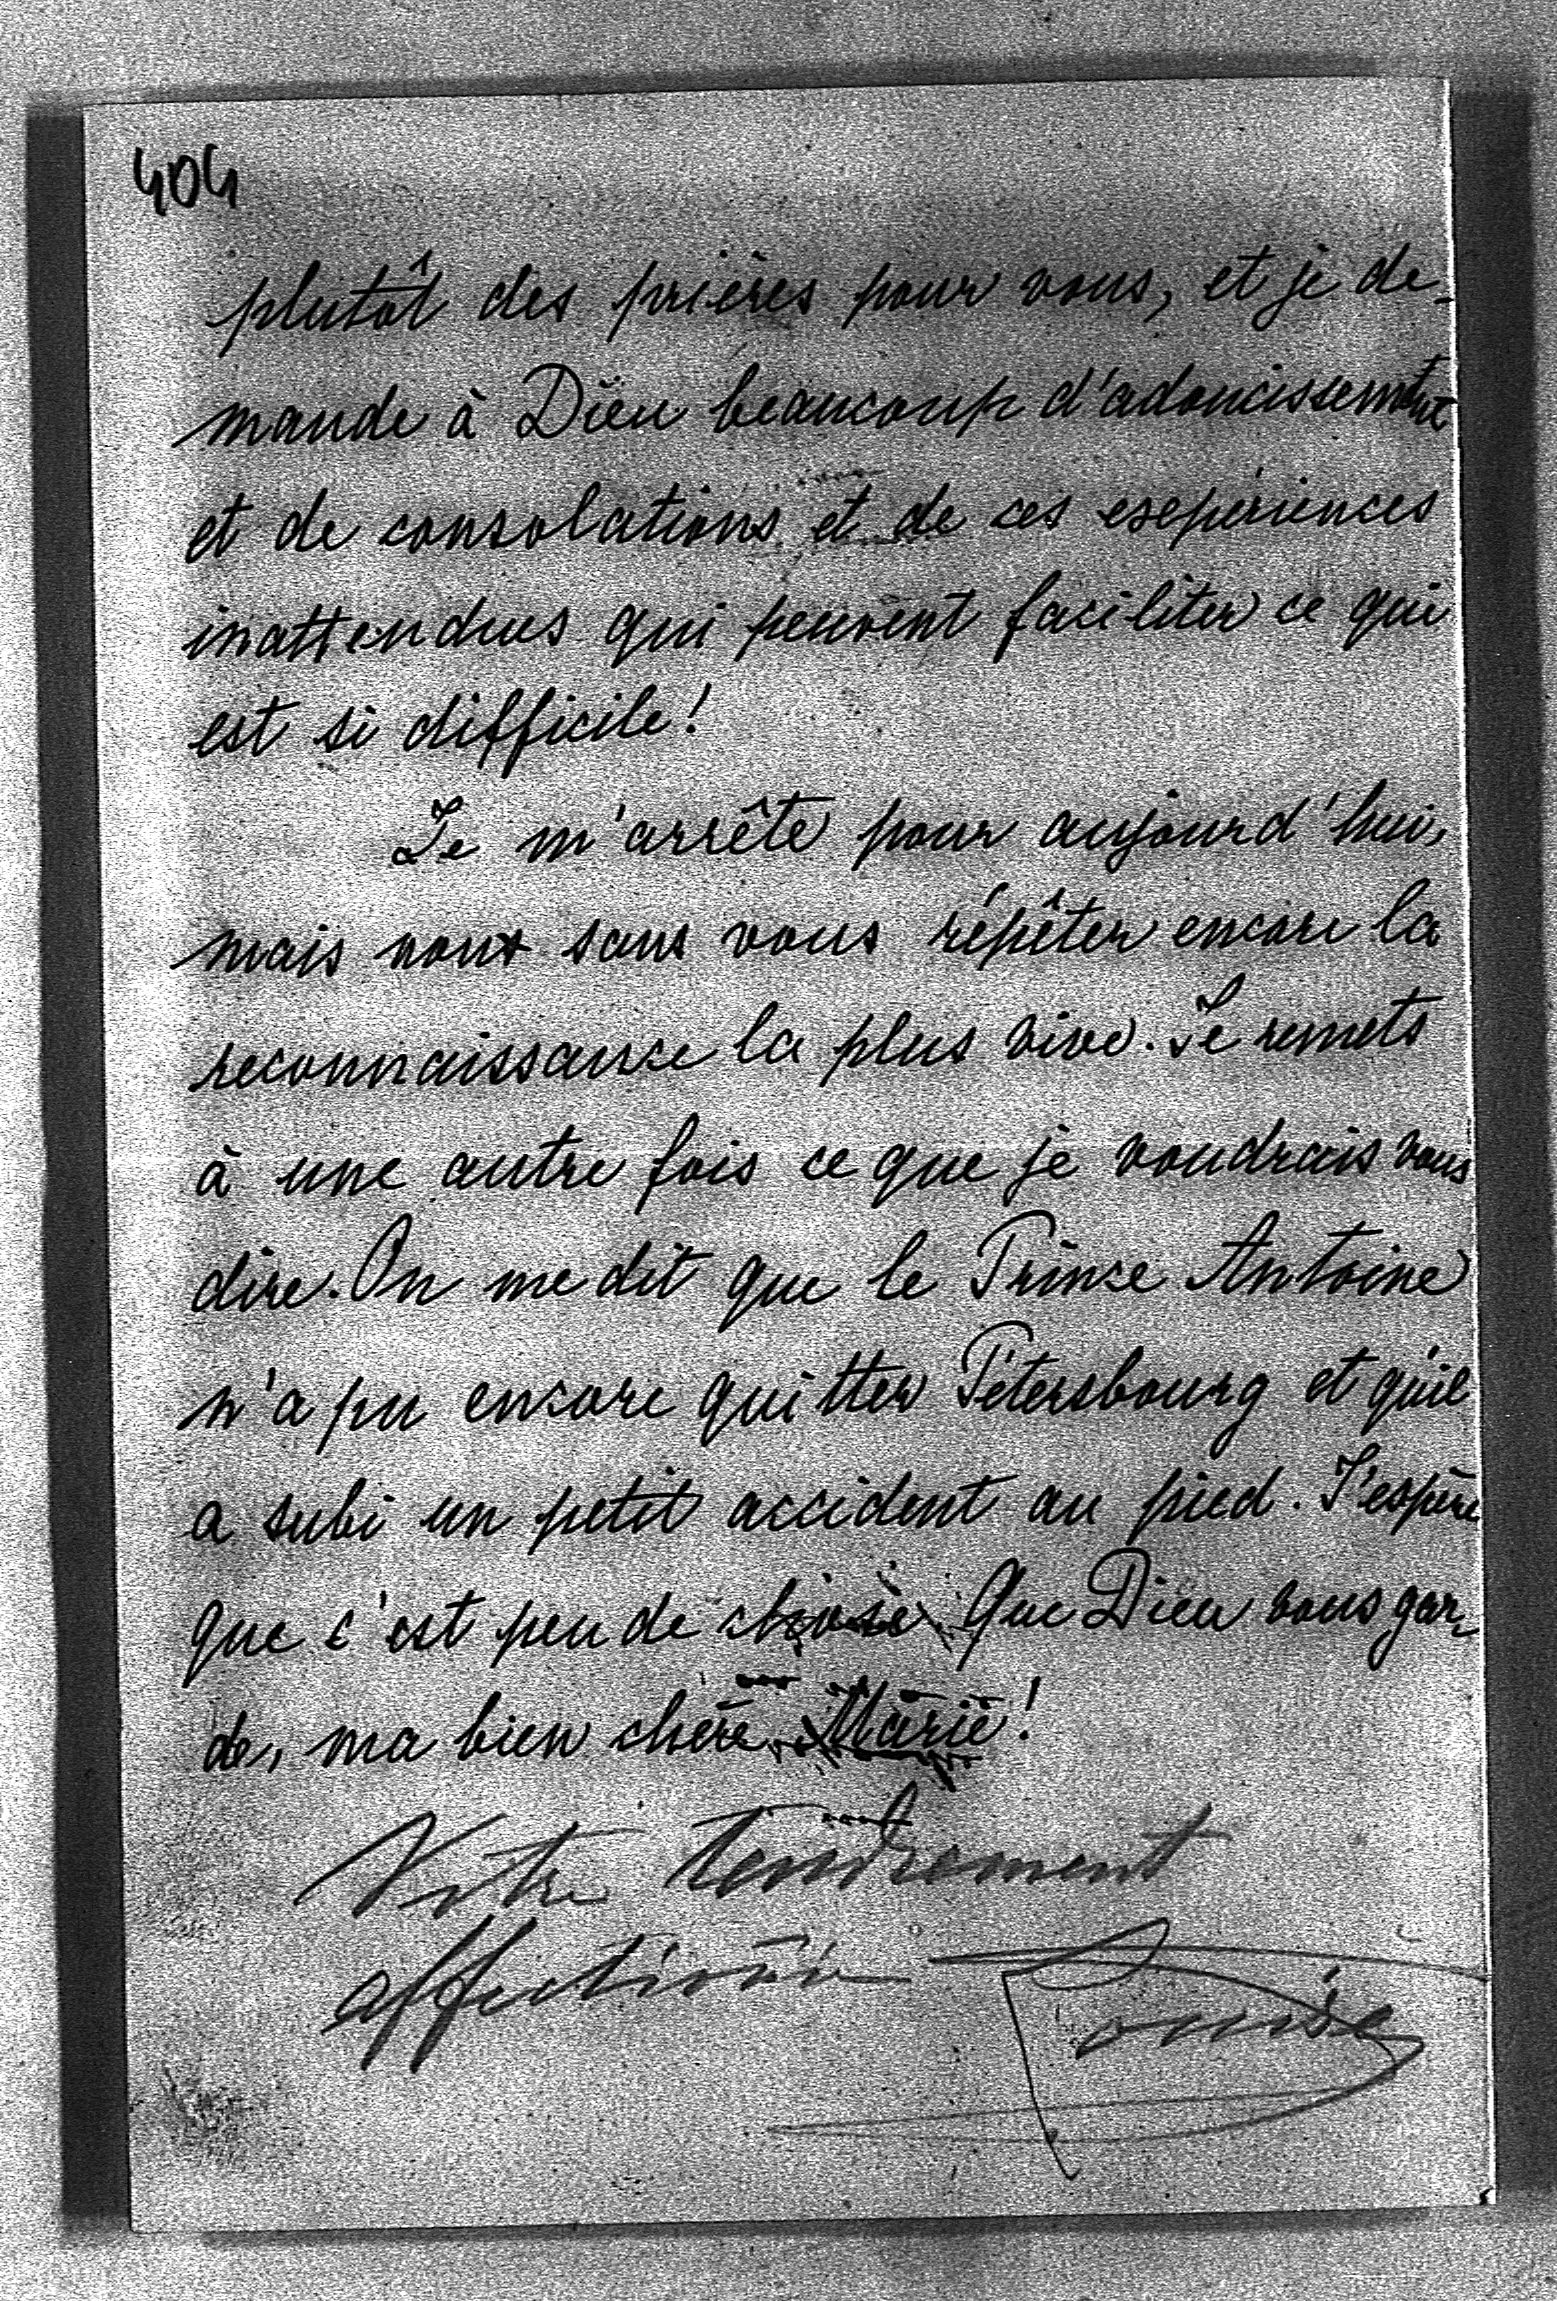 404
plutôt des prières pour vous, et je de-
mande à Dieu beaucoup d'adoucissement
et de consolations et de ces expériences
inattendues qui peuvent faciliter ce qui
est si difficile!
Je m'arrête pour aujourd'hui,
mais non sans vous répêter encore la
reconnaissance la plus vive. Je remets
à une autre fois ce que je voudrais vous
dire. On me dit que le Prince Antoine
n'a pu encore quitter Pétersbourg et qu'il
a subi un petit accident au pied. J'espère
que c'est peu de chose. Que Dieu vous gar-
de, ma bien chère Marie!
Votre tendrement
affectionée Louise